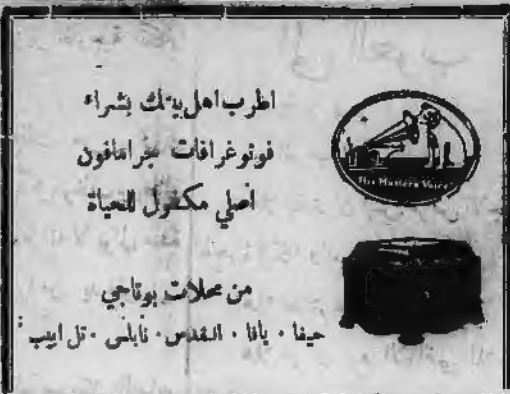 اطرب اهل بيتك بشراء
فونوغرافات جرامافون
اصلي مكفول للحياة
His Masters Voice
من محلات بوتاجي
حيفا · يافا · القدس · نابلس · تل ابيب